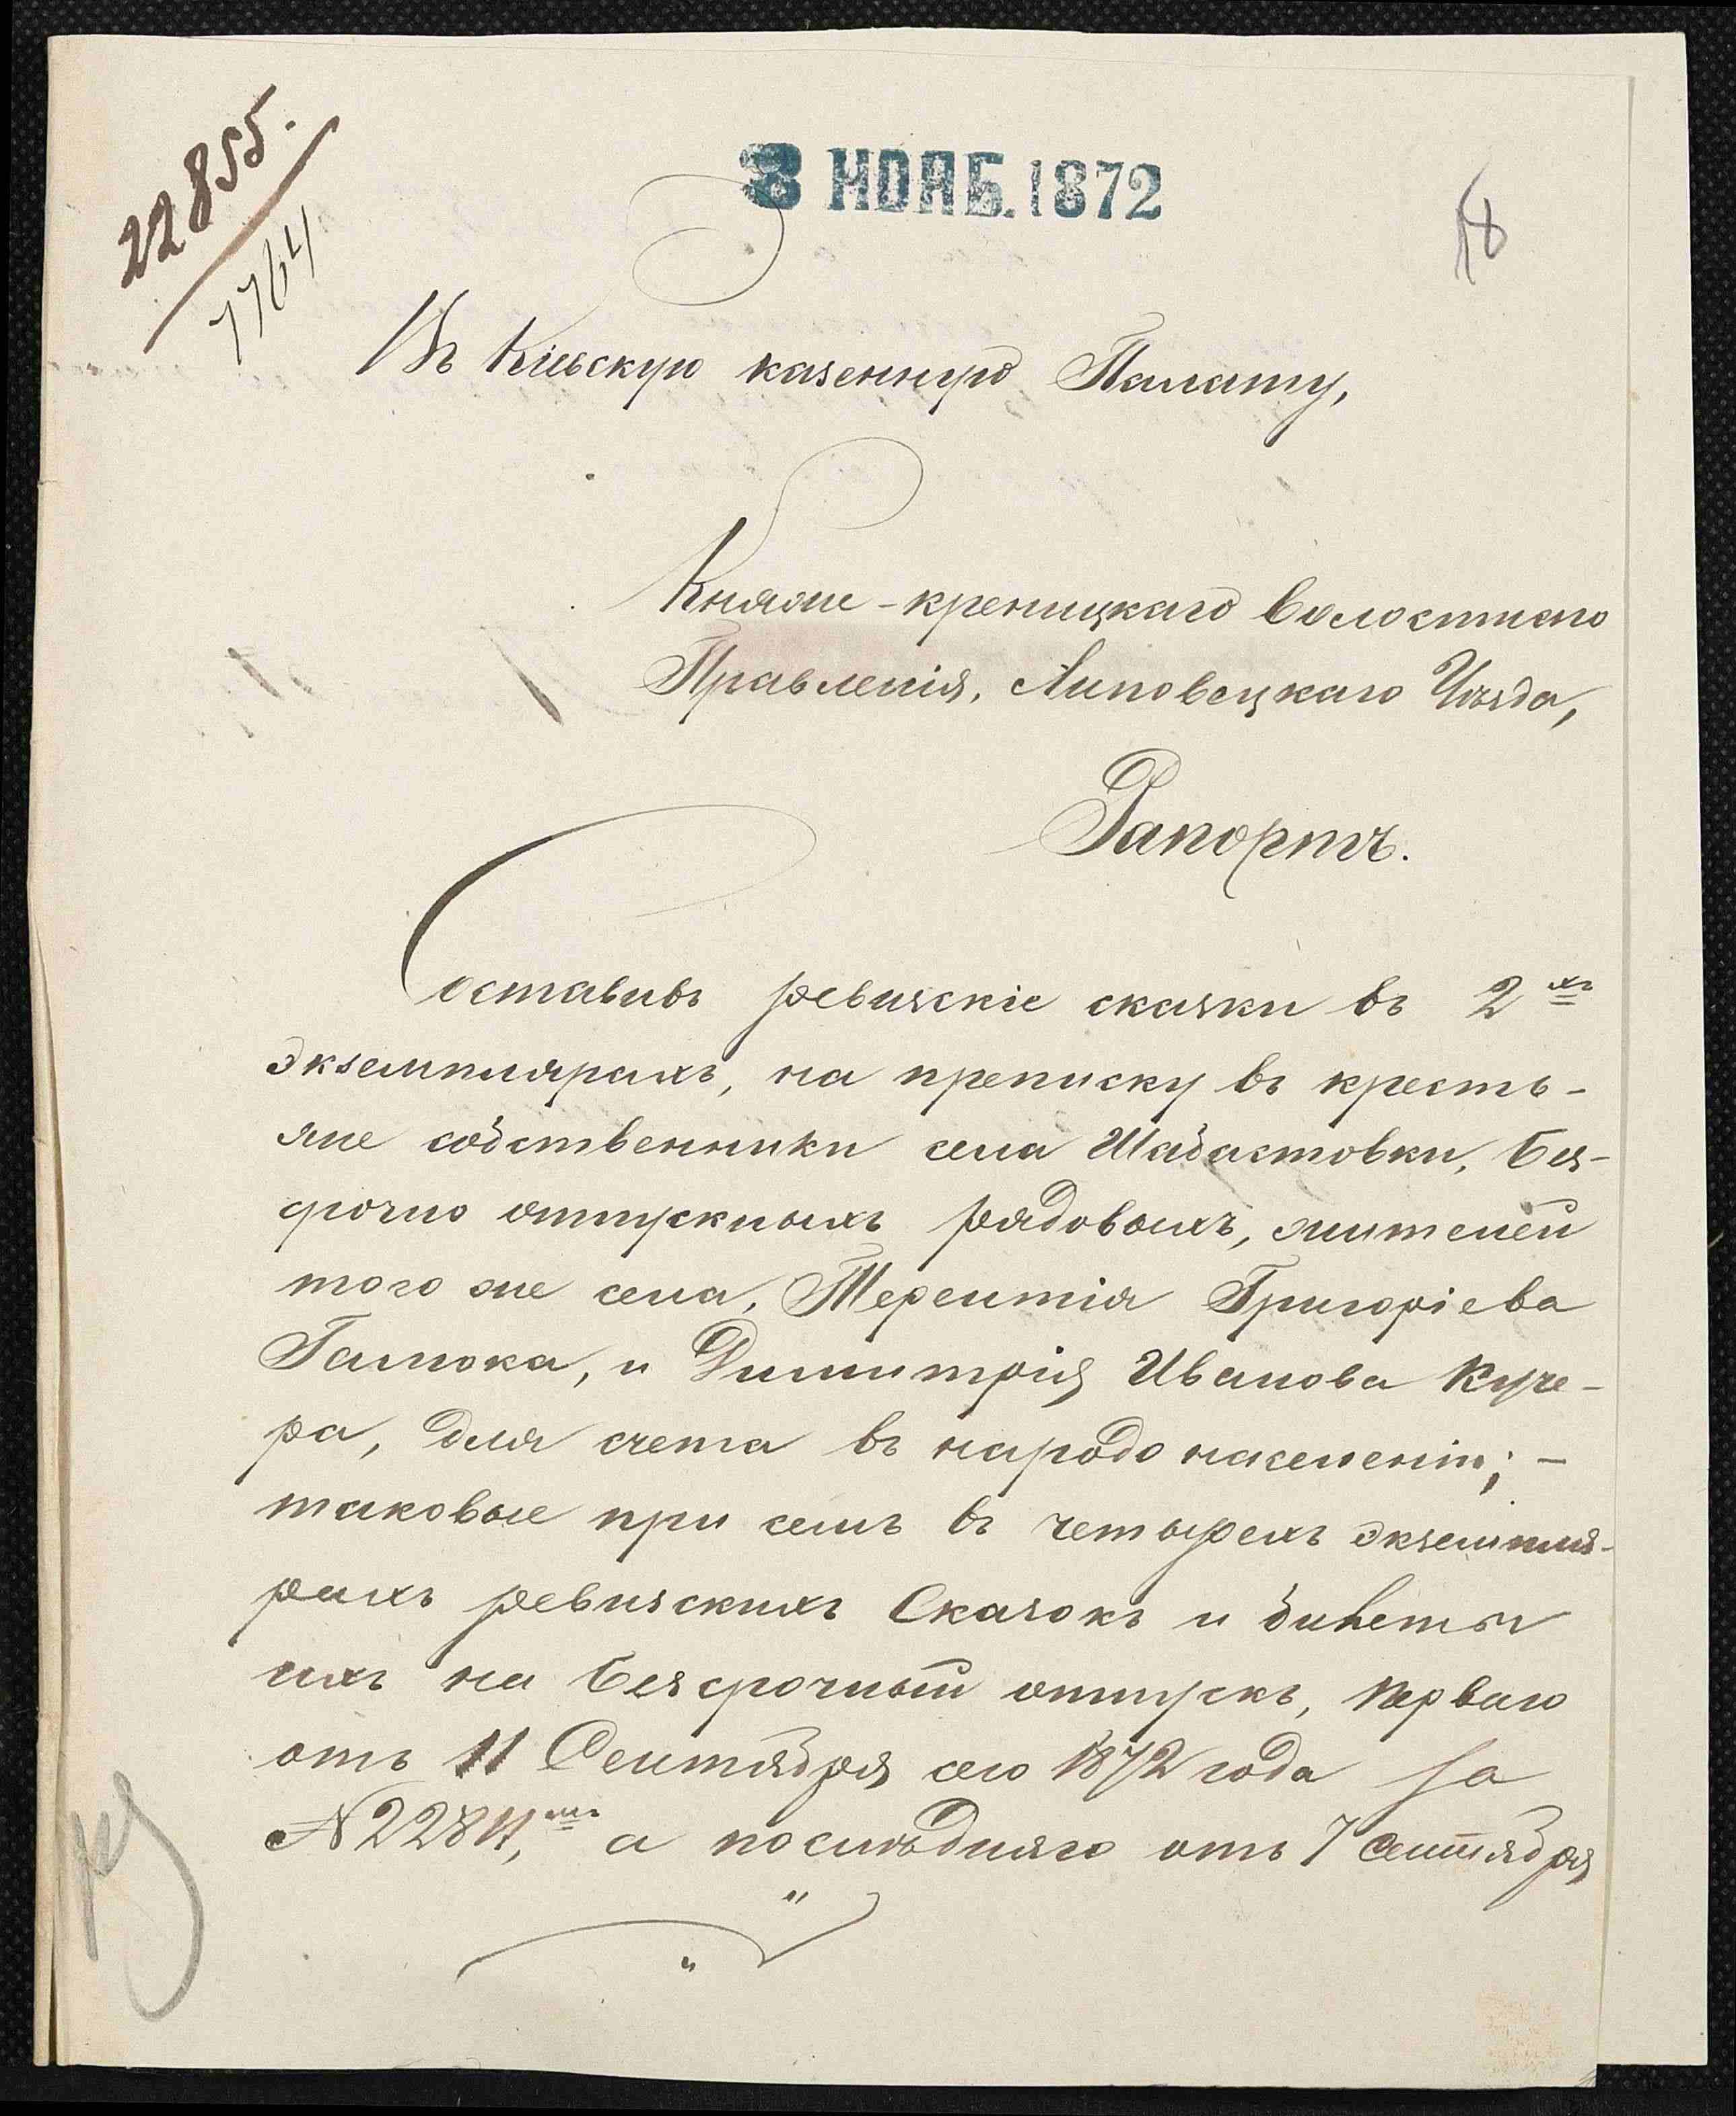 22855.
7764
8 НОЯБ. 1872
18
Въ Кіевскую казенную Палату,
Княже-креницкаго волостнаго
Правленія, Липовецкаго Уѣзда,
Рапортъ.
Составивъ ревизскіе сказки въ 2хъ
экземплярахъ, на преписку въ кресть-
яне собственники села Шабастовки, без-
срочно отпускныхъ рядовыхъ, жителей
того же села, Терентія Григоріева
Галюка, и Димитрія Иванова Куче-
ра, для счета въ народонаселеніи; -
таковые при семъ въ четырехъ экземпля-
рахъ ревизскихъ Сказокъ и билеты
ихъ на безсрочный отпускъ, перваго
отъ 11 Сентября сего 1872 года за
№ 22811,мъ а послѣдняго отъ 7 Сентября